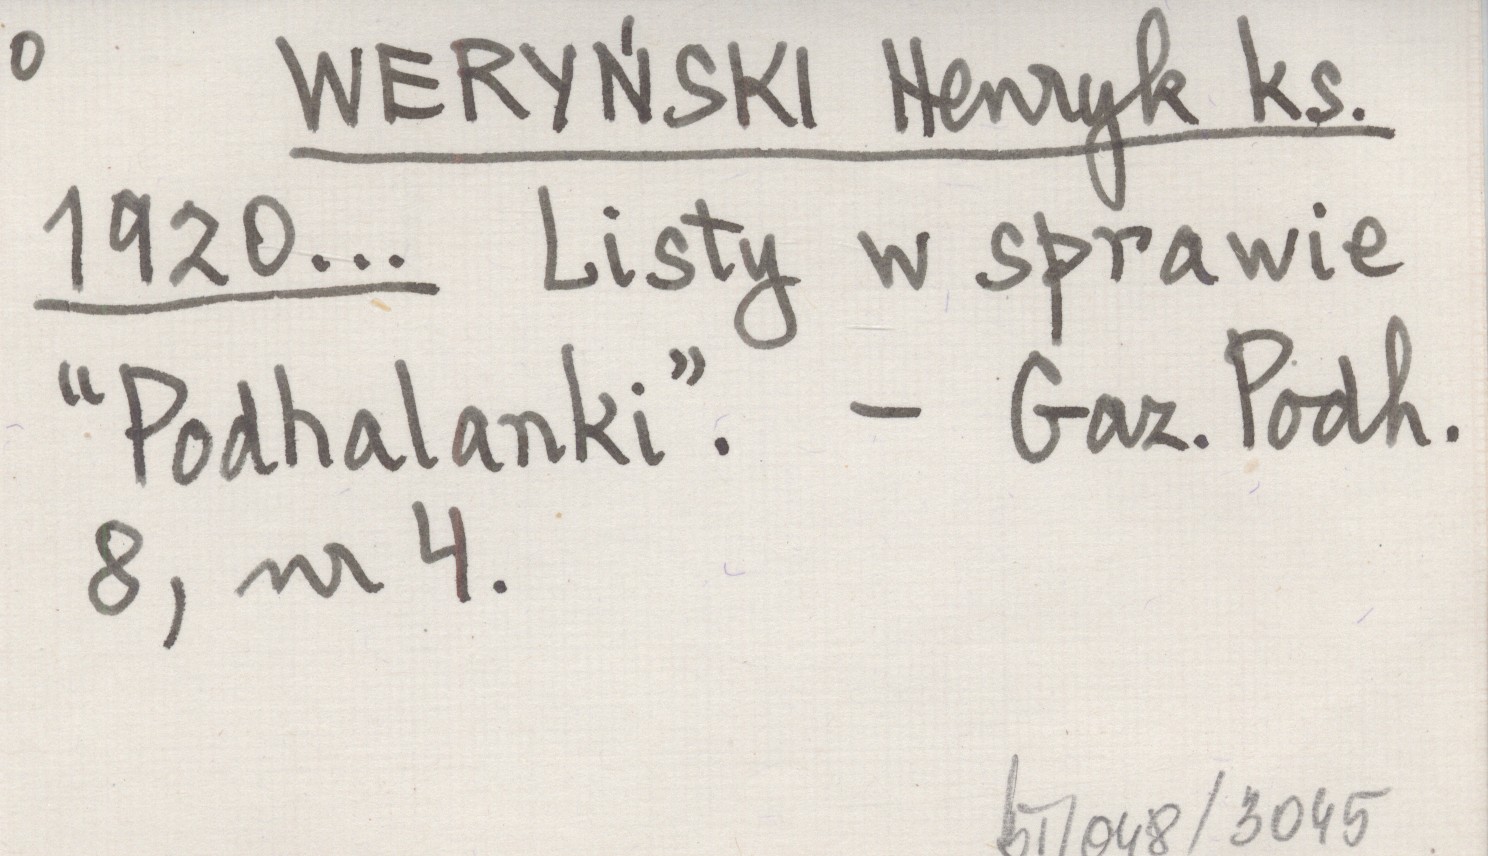 o WERYŃSKI Henryk ks.
1920... Listy w sprawie
“Podhalanki”. – Gaz. Podh.
8, nr 4.
/048/3045